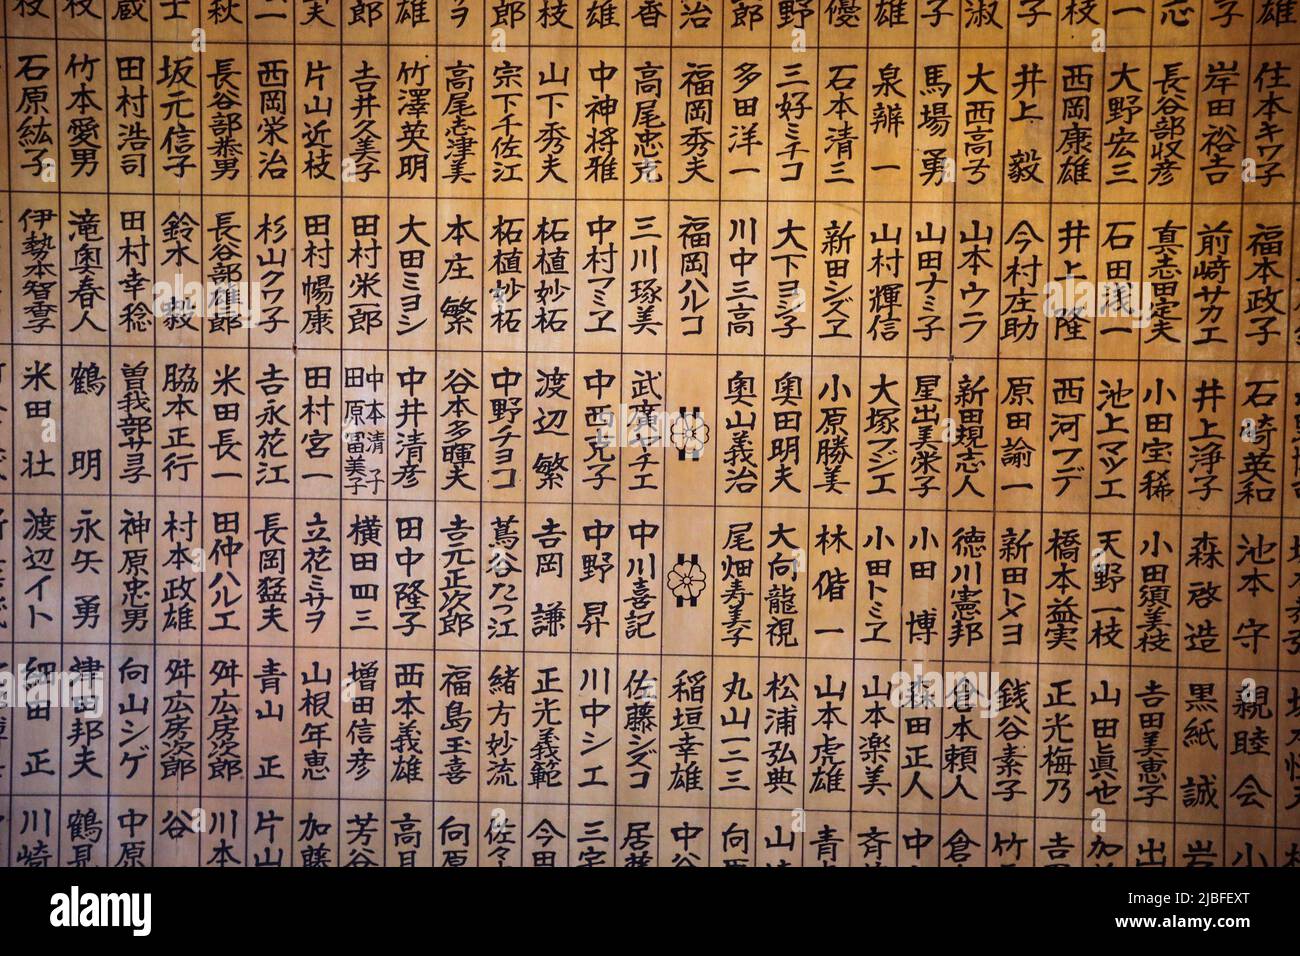 住本キワ子
岸田裕吉
長谷部収彦
大野宏三
西岡康雄
井上毅
大西高弌
馬場勇
泉辦一
石本清三
三好ミチコ
多田洋一
福岡秀夫
高尾忠克
中神将雅
山下秀夫
宗下千佐江
高尾志津美
竹澤英明
吉井久美子
片山近枝
西岡栄治
長谷部恭男
坂元信子
田村浩司
竹本愛男
石原紘子
福本政子
前﨑サカエ
真志田定夫
石田浅一
井上隆
今村庄助
山本ウラ
山田ナミ子
山村輝信
新田シズヱ
大下ヨシ子
川中三高
福岡ハルコ
三川琢美
中村マミヱ
柘植妙柘
柘植妙柘
本庄繁
大田ミヨシ
田村栄一郎
田村暢康
杉山クワ子
長谷部雄郎
鈴木毅
田村幸稔
滝奥春人
伊勢本智香子
石崎英和
井上浄子
小田宝稀
池上マツエ
西河フデ
原田諭一
新田規志人
星出美栄子
大塚マジエ
小原勝美
奥田明夫
奥山義治
武廣ヤチエ
中西克子
渡辺繁
中野チヨコ
谷本多暉夫
中井清彦
中本清子
田原冨美子
田村宮一
吉永花江
米田長一
脇本正行
曽我部サヨ子
鶴明
米田壮
池本守
森啓造
小田須美枝
天野一枝
橋本益実
新田トメヨ
徳川憲邦
小田博
小田トミヱ
林偕一
大向龍視
尾畑寿美子
中川喜記
中野昇
吉岡謙
蔦谷たつ江
吉元正次郎
田中隆子
横田四三
立花ミサヲ
長岡猛夫
田仲ハルエ
村本政雄
神原忠男
永矢勇
渡辺イト
親睦会
黒紙誠
吉田美恵子
山田眞也
正光梅乃
銭谷素子
倉本頼人
森田正人
山本楽美
山本虎雄
松浦弘典
丸山一二三
稲垣幸雄
佐藤シズコ
川中シエ
正光義範
緒方妙流
福島玉喜
西本義雄
増田信彦
山根年恵
青山正
舛広房次郎
舛広房次郎
向山シゲ
津田邦夫
細田正
alamy
Image ID: 2JBFEXT
www.alamy.com